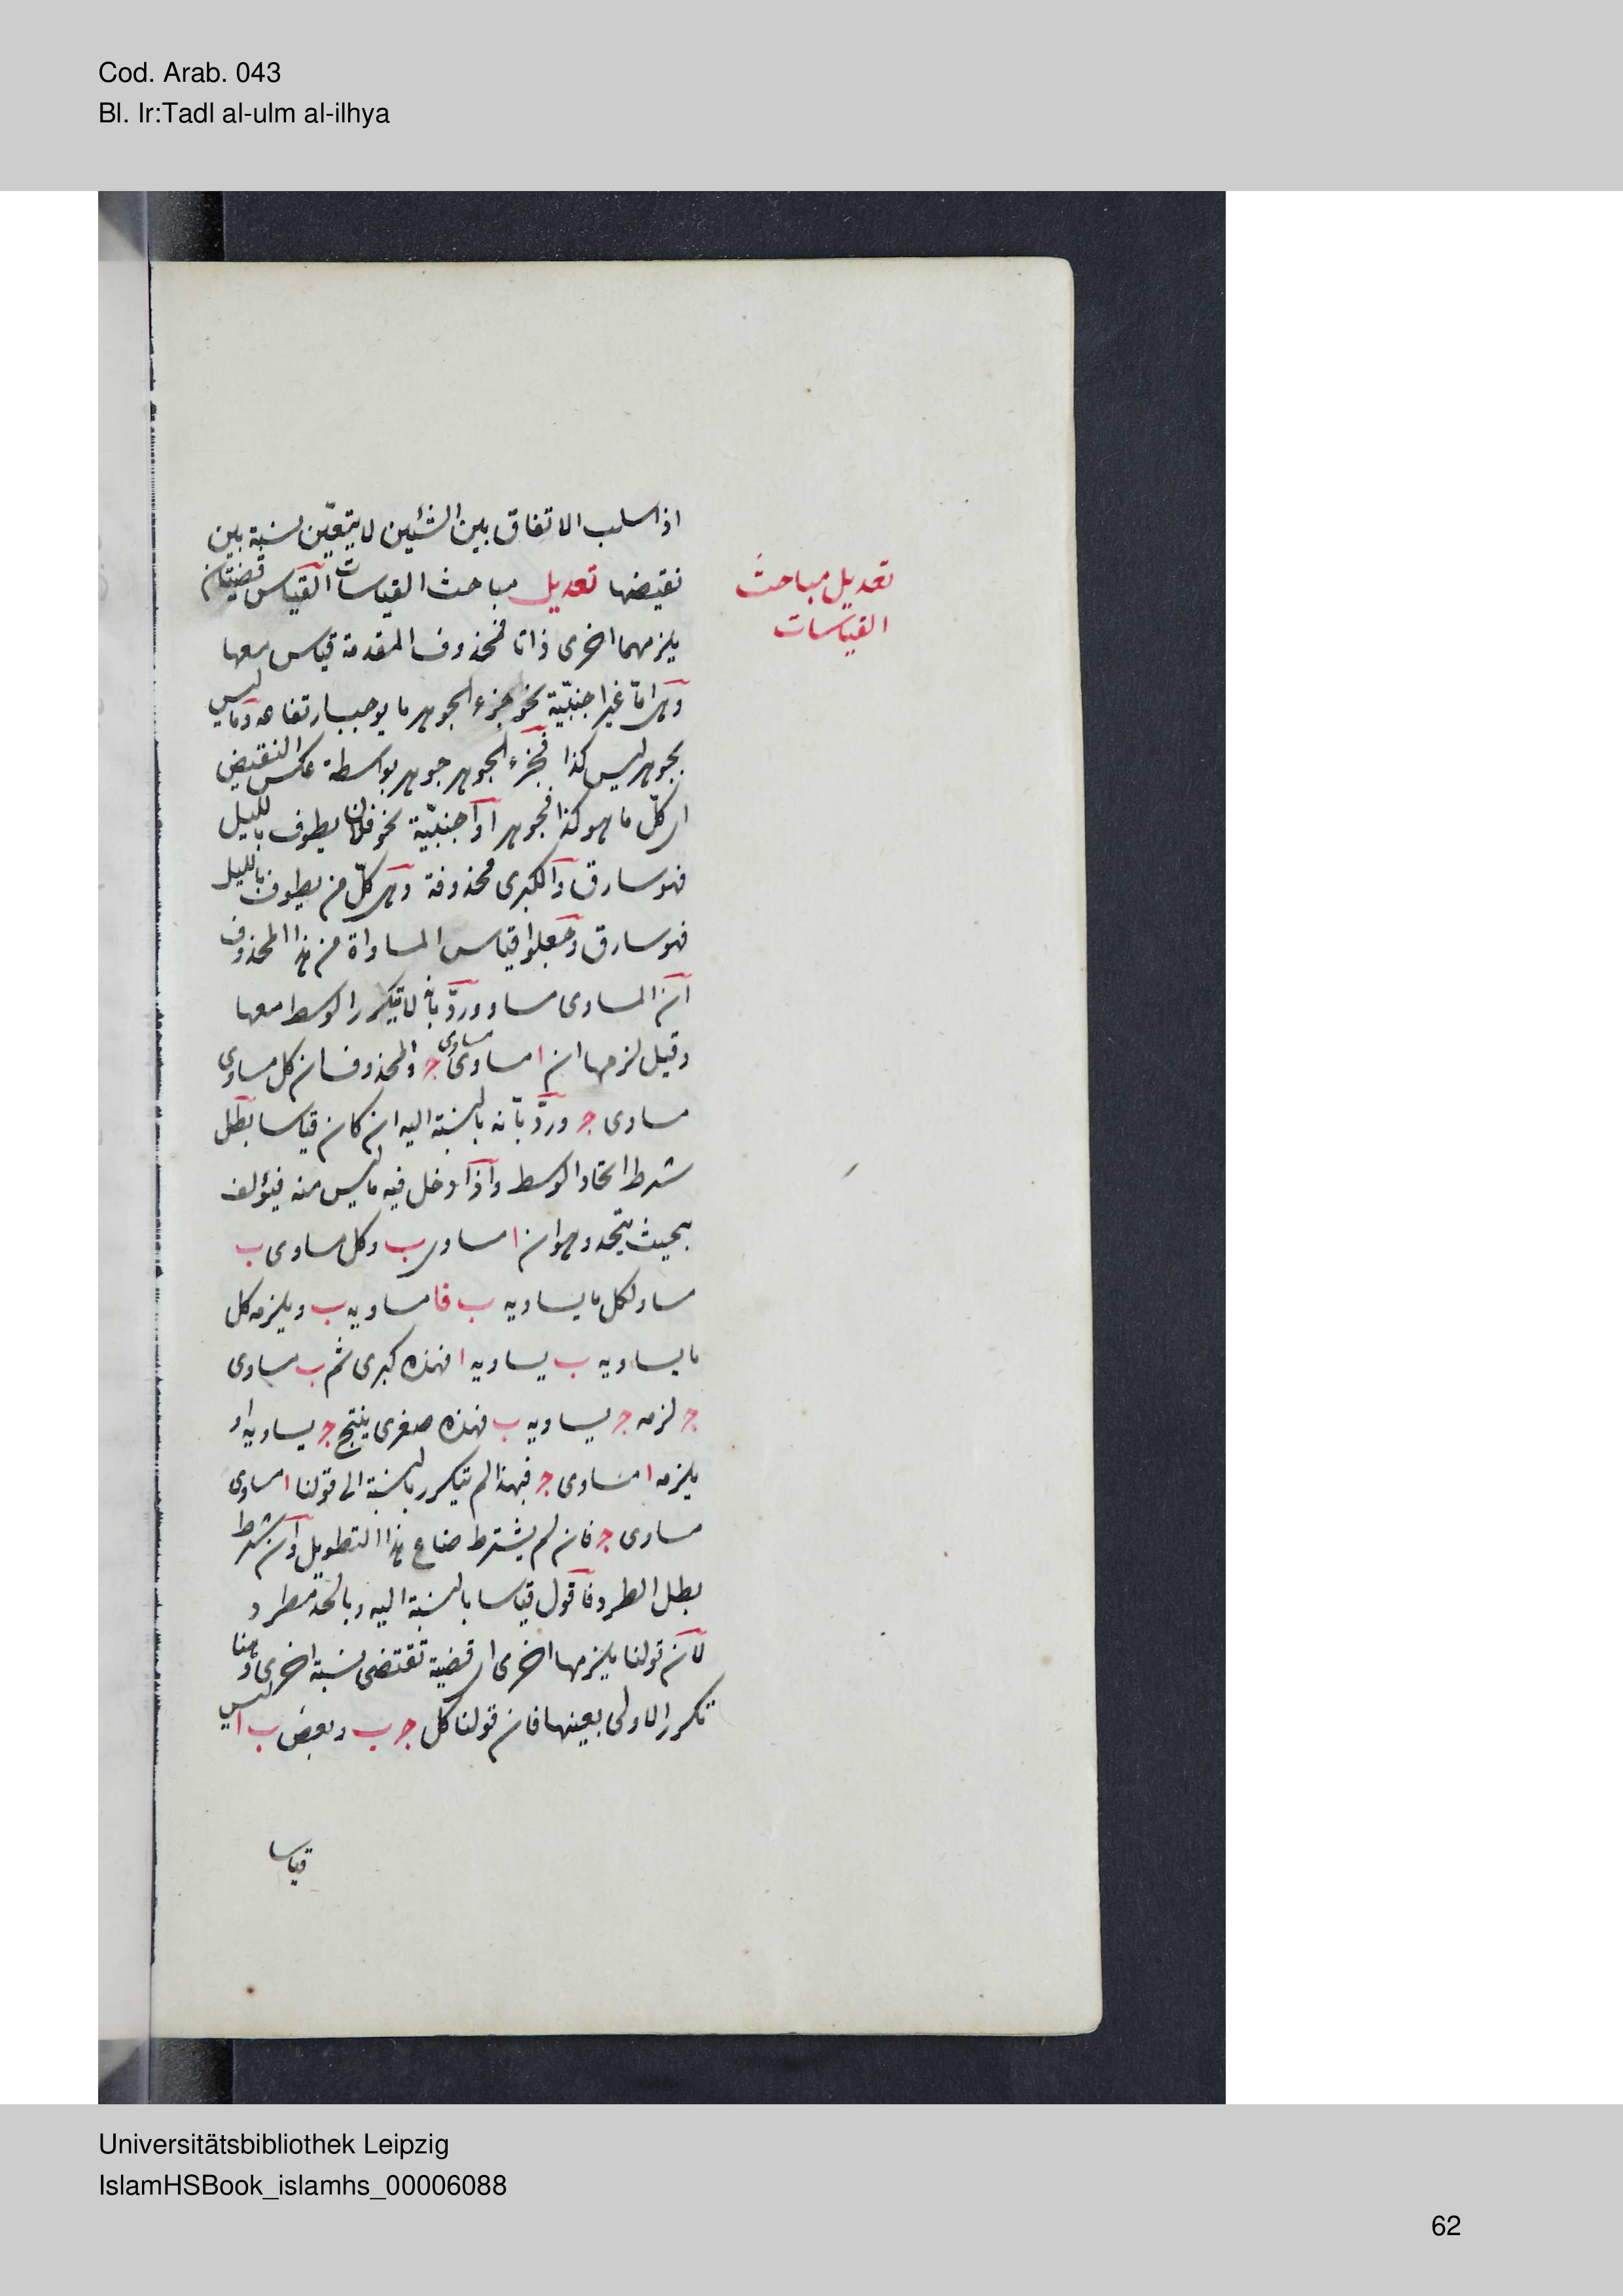 Cod. Arab. 043
Bl. Ir:Tadl al-ulm al-ilhya
اذ اسلب الاتفاق بين الشئين لا يتعيّن نسبة بين
نقيضها تعديل مباحث القياسات القياس قضيتان
تعديل مباحث
القياسات
يلزمهما اخرى ذاتا فمحذوف المقدمة قياس معها
وهى امّا غير اجنبيّة نحو جزء الجوهر ما يوجب ارتفاعه وما ليس
بجوهر ليس كذا فجزء الجوهر جوهر بواسطة عكس النقيض
اى كلّ ما هو كذا فجوهر او اجنبيّة نحو فلان يطوف بالليل
فهو سارق والكبرى محذوفة وهى كلّ من يطوف بالليل
فهو سارق وجعلوا قياس المساواة من هذا المحذوف
ان المساوى مساو وردّ بانّه لا يتكرر الوسط معها
وقيل لزمها ان ا مساوى مساوى ج والمحذوف ان كل مساوى
مساوى ج وردّ بانّه بالنسبة اليه ان كان قياسا بطل
شرط اتحاد الوسط واذا دخل فيه ما ليس منه فيؤلف
بحيث يتحد وهو ان ا مساوى ب وكل مساوى ب
مساو لكل ما يساويه ب فا مساويه ب ويلزمه كل
ما يساويه ب يساويه ا فهذه كبرى ثم ب مساوى
ج لزمه ج يساويه ب فهذه صغرى ينتج ج يساويه ا و
يلزمه ا مساوى ج فبهذا لم يتكرر بالنسبة الى قولنا ا مساوى
مساوى ج فان لم يشترط ضاع هذا التطويل وان شرط
بطل الطرد فاقول قياسا بالنسبة اليه وبالحد مطرد
لان قولنا يلزمها اخرى اى قضية تقتضى نسبة اخرى وهنا
تكرر الاولى بعينها فان قولنا كل ج ب وبعض ب ا ليس
قياسا
Universitätsbibliothek Leipzig
IslamHSBook_islamhs_00006088
62